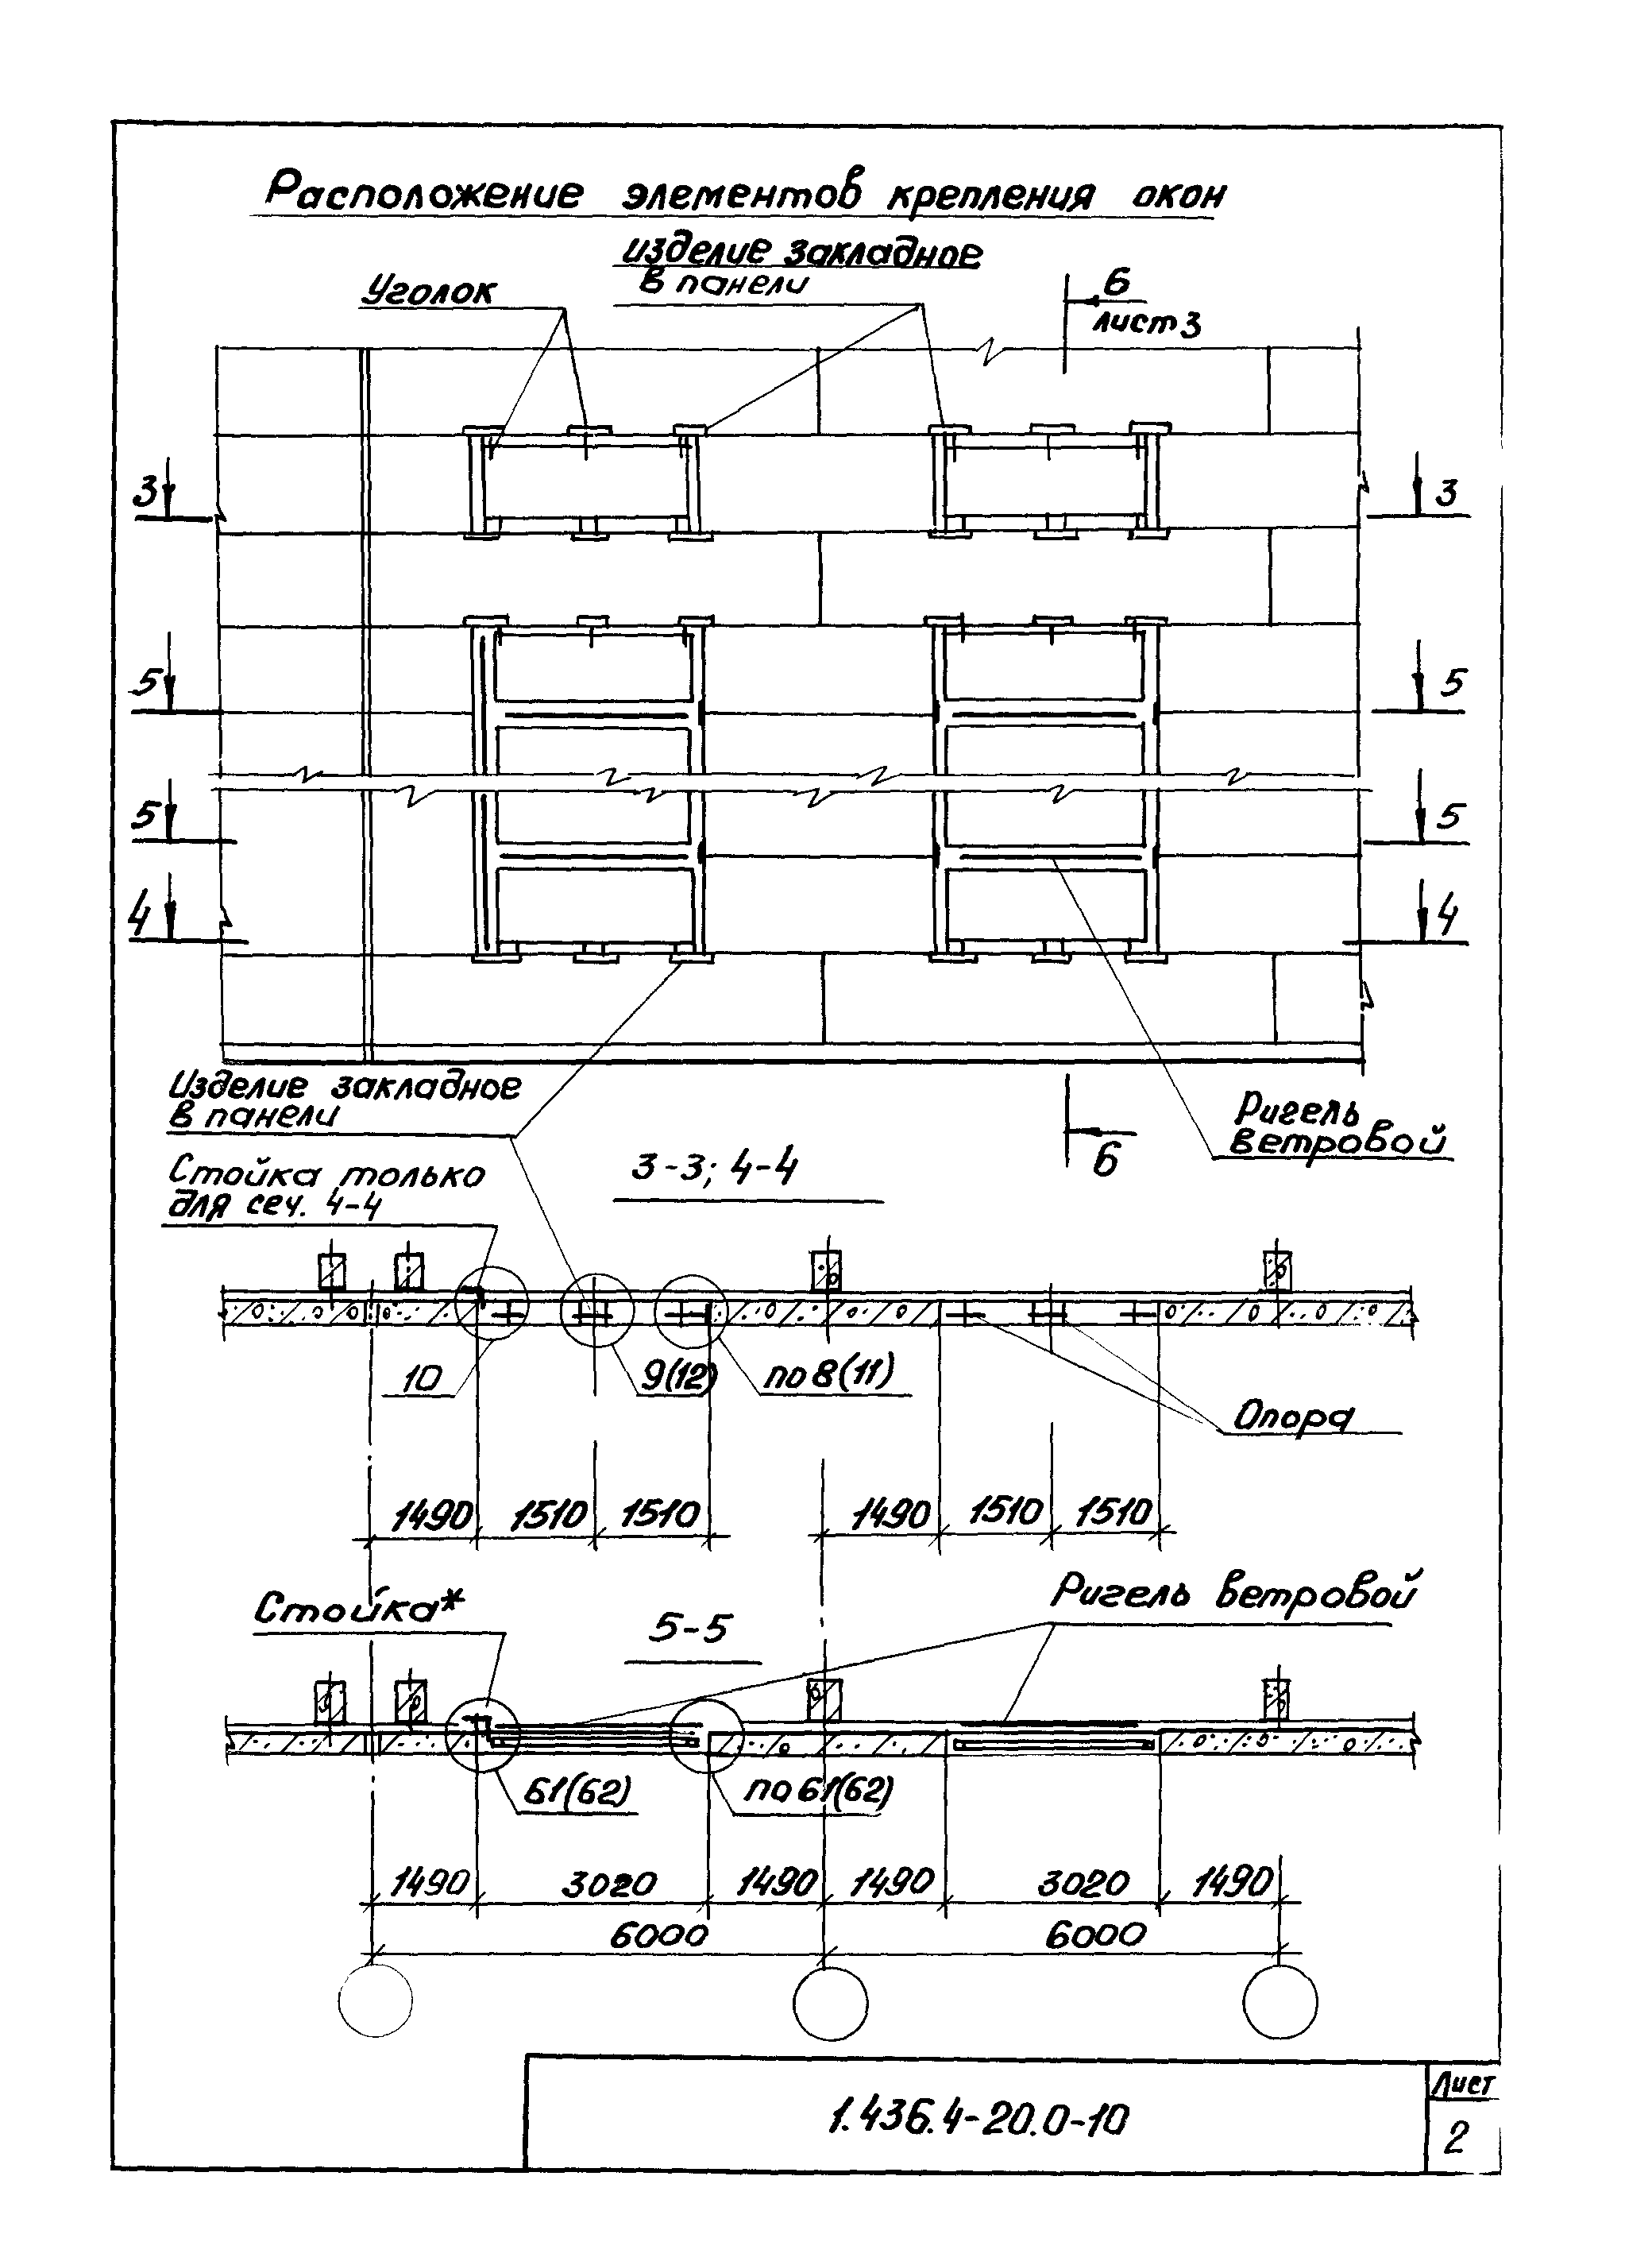 Расположение элементов крепления окон
изделие закладное
в панели
Уголок
6
лист 3
3
3
5
5
5
5
4
4
Изделие закладное
в панели
Ригель
ветровой
6
3-3; 4-4
Стойка только
для сеч. 4-4
10
9(12)
по 8(11)
Опора
1490 1510 1510 1490 1510 1510
Стойка*
5-5
Ригель ветровой
61(62)
по 61(62)
1490 3020 1490 1490 3020 1490
6000 6000
1.436.4-20.0-10
Лист
2